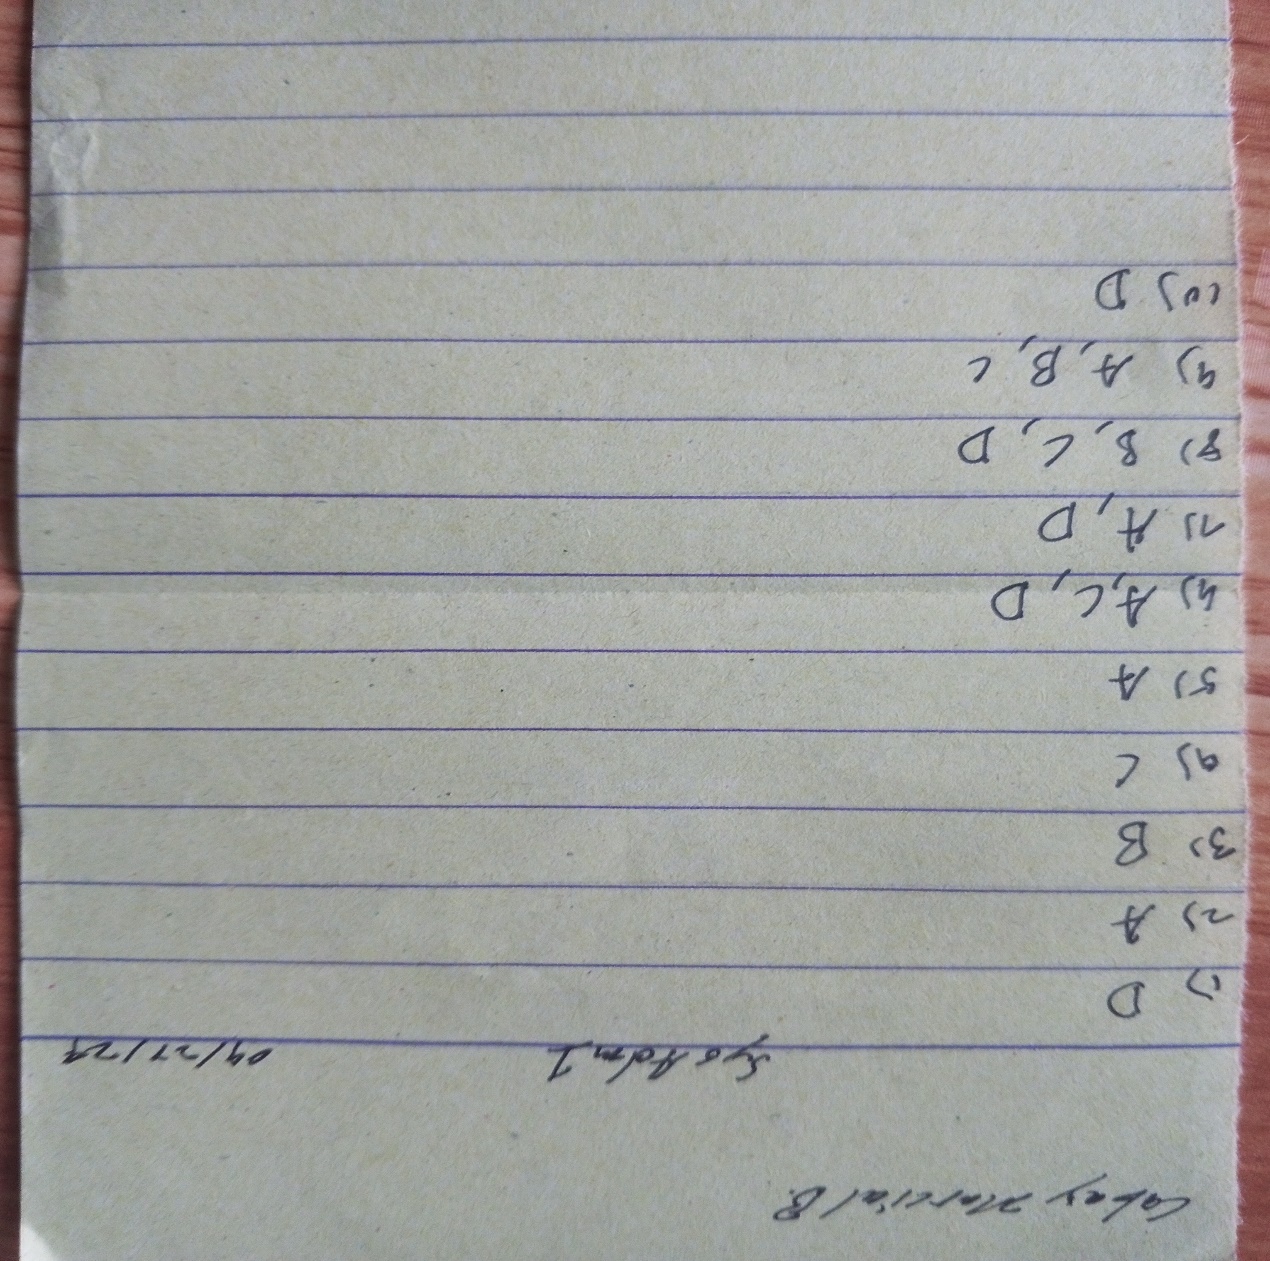 Cabay Marcial B.
SysAdm 1 09/27/24
1) D
2) A
3) B
4) C
5) A
6) A, C, D
7) A, D
8) B, C, D
9) A, B, C
10) D